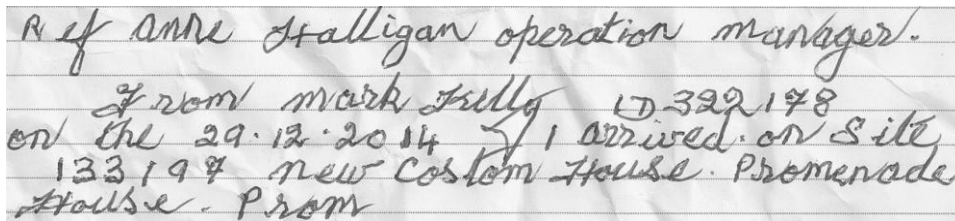 Ref Anne Halligan operation manager.
From mark Kelly ID 322178
on the 29.12.2014 I arrived. on Site
133197 new Costom House. Promenade
House. Prom